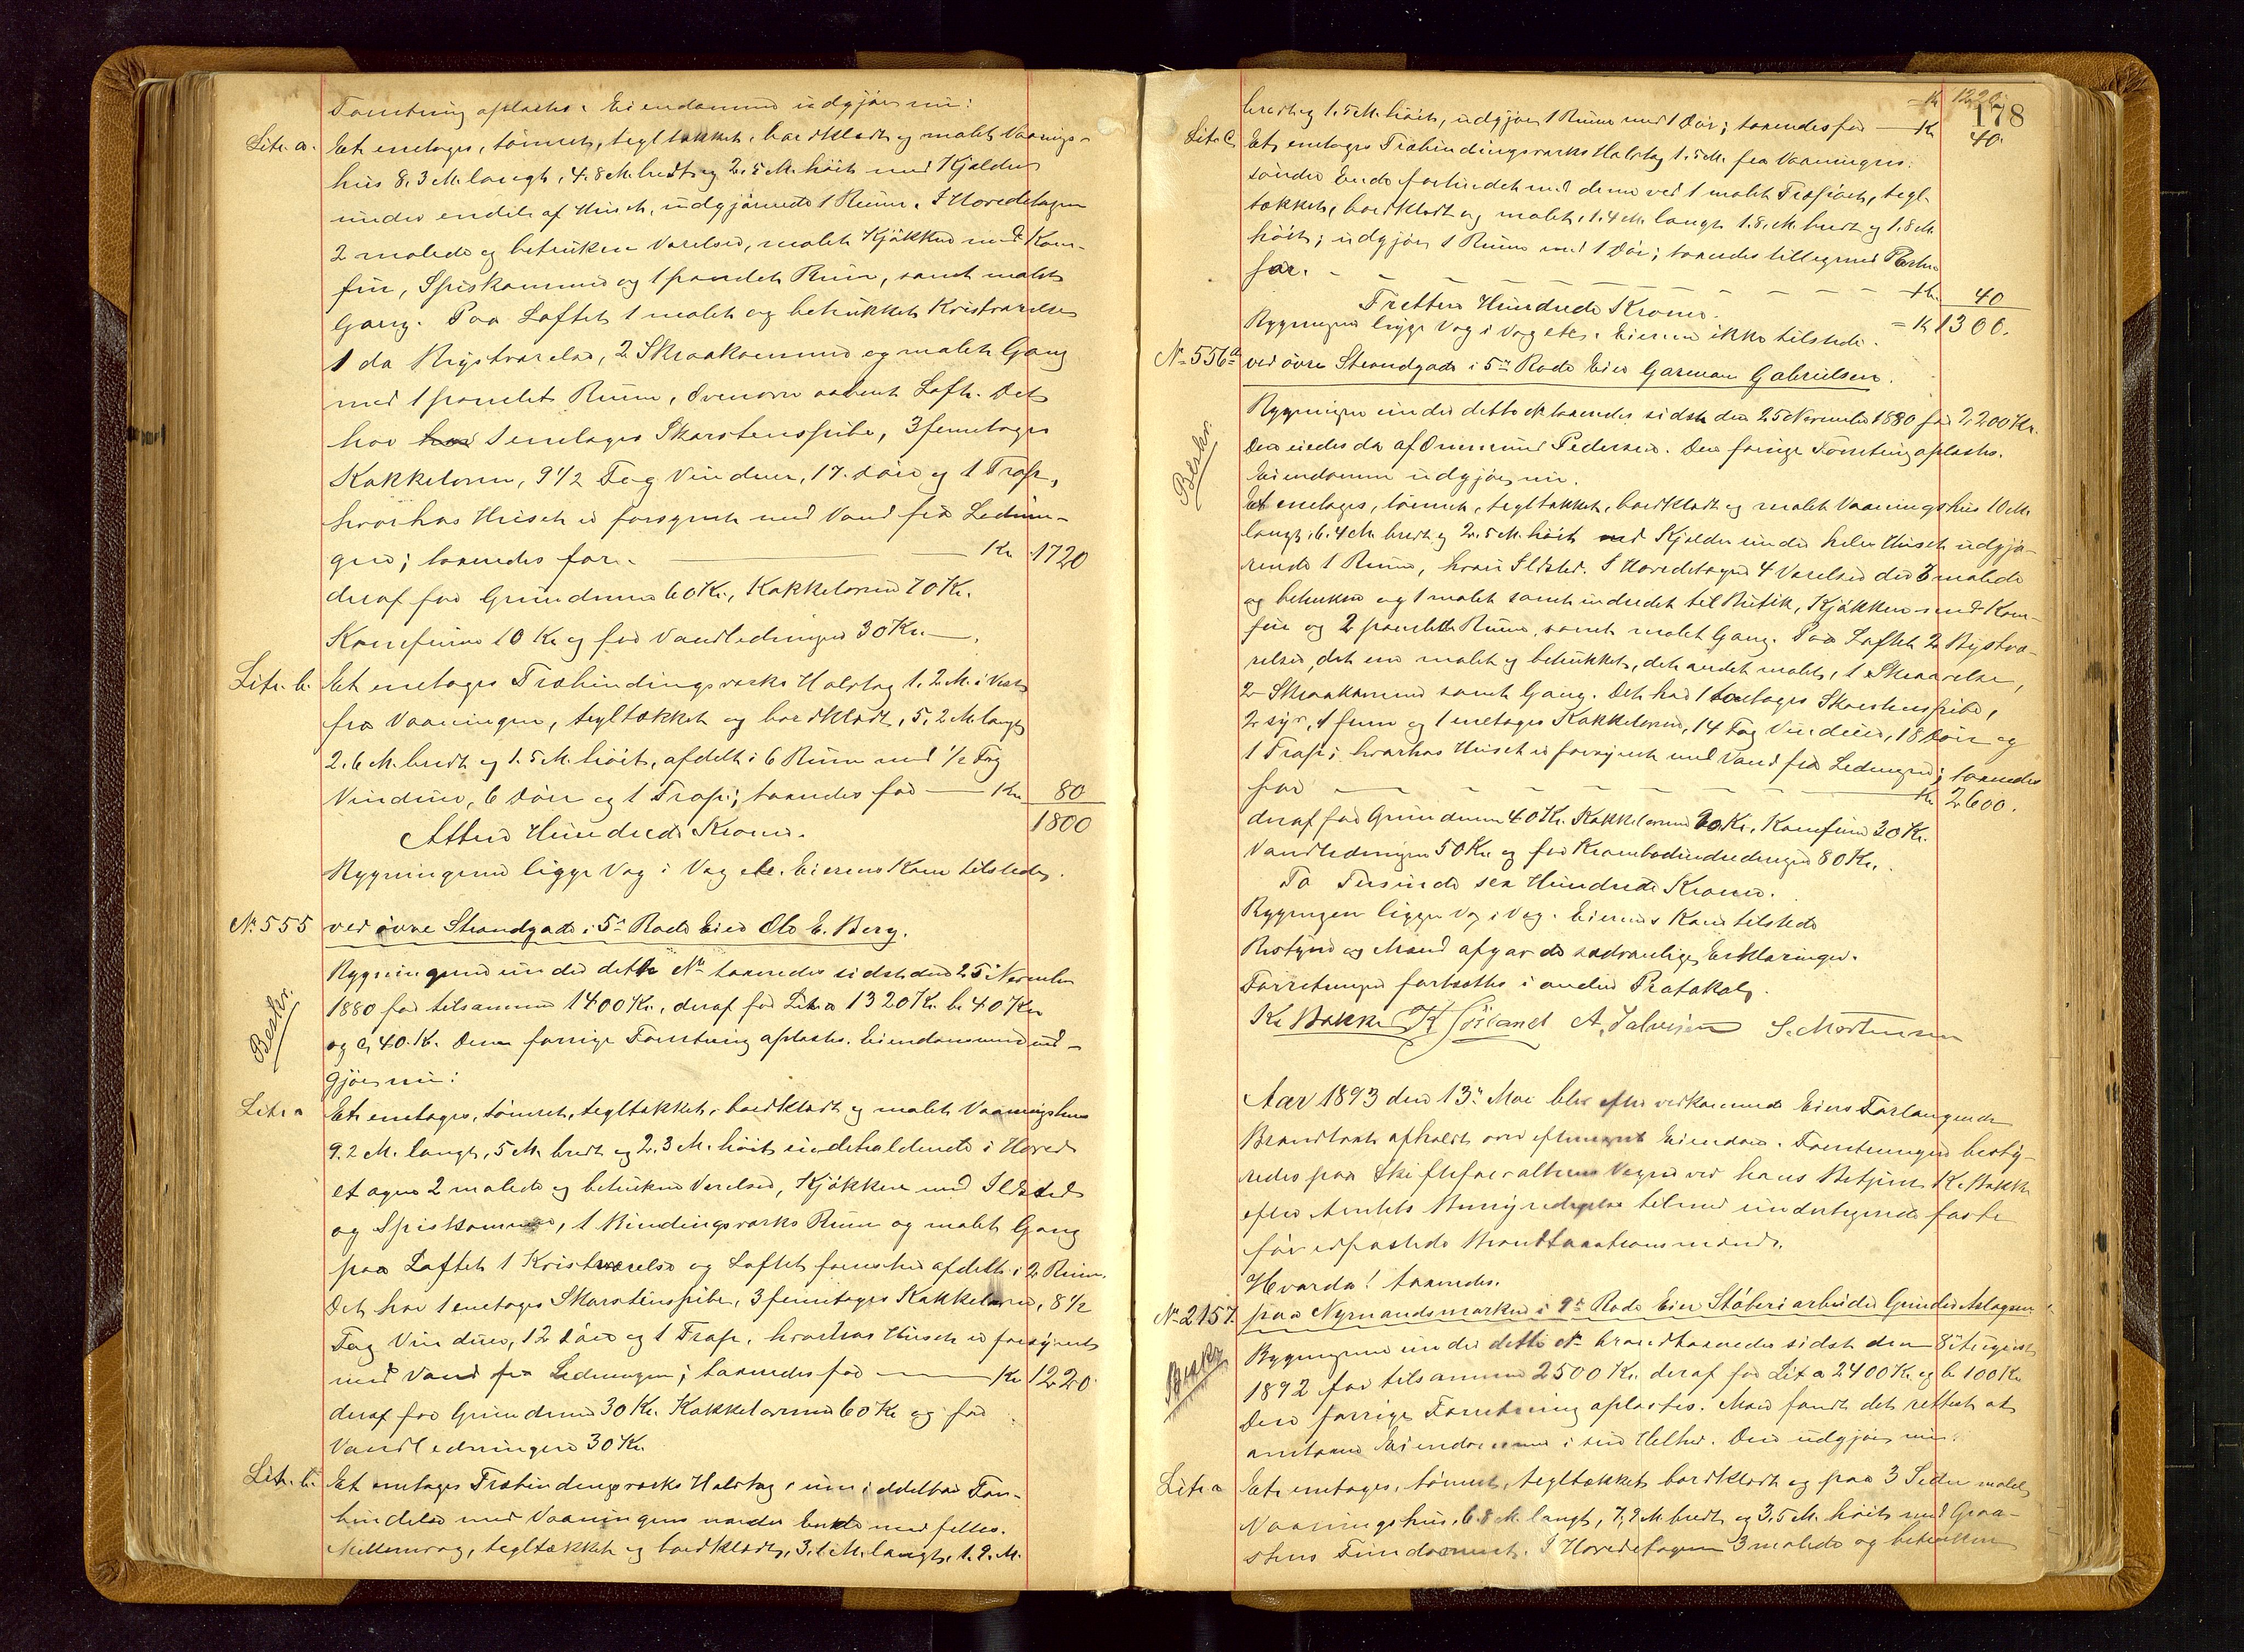 Forretning aplæstes. Eiendommen udgjør nu:
Litr. a. Et enetages, tømret, tegltækket, bordklædt og malet Vaanings-
hus 8,3 M. langt, 4,8 M. bredt og 2,5 M. høit med Kjælder
under endel af Huset, udgjørende 1 Rum. I Hovedetagen
2 malede og betrukne Værelser, malet Kjøkken med Kom-
fur, Spiskammer og 1 panelet Rum, samt malet
Gang. Paa Loftet 1 malet og betrukket Kvistværelse
1 do Bigstværelse, 2 Skraakammer og malet Gang
med 1 panelet Rum, ovenover aabent Loft. Det
har 1 enetages Skorstenspibe, 3 femetages
Kakkelovne, 9 1/2 Fag Vinduer, 17 Døre og 1 Trap,
hvorhos Huset er forsynet med Vand fra Lednin-
gen; taxeredes for. Kr 1720
deraf for Grunden 60 Kr., Kakkelovne 70 Kr.
Komfuren 10 Kr og for Vandledningen 30 Kr.
Litr. b. Et enetages Træbindingsværks Halvtag 1,2 M. i Vest
fra Vaaningen, tegltækket og bordklædt, 5,2 M. langt
2,6 M. bredt og 1,5 M. høit, afdelt i 6 Rum med 1/2 Fag
Vinduer, 6 Døre og 1 Trap; taxeredes for Kr 80
1800
Atten Hundrede Kroner.
Bygningerne ligge Væg i Væg etc. Eierens Kone tilstede.
No 555 ved øvre Strandgade i 5te Rode Eier Ole E. Berg.
Bygningerne under dette No taxeredes sidst den 25 November
Beskr.
1880 for tilsammen 1400 Kr., deraf for Litr a 1320 Kr. b 40 Kr
og c, 40 Kr. Den forrige Forretning aplæstes. Eiendommen ud-
gjør nu:
Litr a Et enetages, tømret, tegltækket, bordklædt og malet Vaaningshus
9,2 M. langt, 5 M. bredt og 2,3 M. høit indeholdende i Hoved
etagen 2 malede og betrukne Værelser, Kjøkken med Ildsted
og Spiskammer, 1 Bindingsværks Rum og malet Gang
paa Loftet 1 Kvistværelse og Loftet forresten afdelt i 2 Rum.
Det har 1 enetages Skorstenspibe, 3 femetages Kakkelovne, 8 1/2
Fag Vinduer, 12 Døre og 1 Trap, hvorhos Huset er forsynet
med Vand fra Ledningen; taxeredes for Kr 1220
deraf for Grunden 30 Kr. Kakkelovne 60 Kr og for
Vandledningen 30 Kr.
Litr. b. Et enetages Træbindingsværks Halvtag i umiddelbar For-
bindelse med Vaaningens nordre Ende med fælles
Mellemvæg, tegltækket og bordklædt, 3,1 M. langt, 1,9 M.
178
Kr 1220
bredt og 1,5 M. høit, udgjør 1 Rum med 1 Dør; taxeredes for Kr 40.
Litr. c, Et enetages Træbindingsværks Halvtag 1,5 M. fra Vaaningens
søndre Ende forbundet med denne ved 1 malet Træport, tegl-
tækket, bordklædt og malet, 1,4 M. langt 1,8 M. bredt og 1,8 M
høit; udgjør 1 Rum med 1 Dør; taxeredes tilligemed Porten
for. Kr. 40
Tretten Hundrede Kroner. = Kr 1300.
Bygningerne ligge Væg i Væg etc. Eieren ikke tilstede.
No 556a ved øvre Strandgade i 5te Rode Eier Garman Gabrielsen.
Bygningen under dette No taxeredes sidst den 25 November 1880 for 2,200 Kr.
Beskr.
Den eiedes da af Ommund Pedersen. Den forrige Forretning aplæstes.
Eiendommen udgjør nu.
Et enetages, tømret, tegltækket, bordklædt og malet Vaaningshus 10 M.
langt, 6,4 M. bredt og 2,5 M. høit med Kjælder under hele Huset udgjø-
rende 1 Rum, hvori Ildsted. I Hovedetagen 4 Værelser der 3 malede
og betrukne og 1 malet samt indredet til Butik, Kjøkken med Kom-
fur og 2 panelede Rum, samt malet Gang. Paa Loftet 2 Bigstvæ-
relser, det ene malet og betrukket, det andet malet, 1 Skraavrelse,
2 Skraakammer samt Gang. Det har 1 toetages Skorstenspibe,
2 syv, 1 fem og 1 enetages Kakkelovne, 14 Fag Vinduer, 18 Døre og
1 Trap; hvorhos Huset er forsynet med Vand fra Ledningen; taxeredes
for Kr 2600.
deraf for Grunden 40 Kr. Kakkelovne 90 Kr. Komfuren 20 Kr.
Vandledningen 50 Kr. og for Krambodindredningen 80 Kr.
To Tusinde sex Hundrede Kroner.
Bygningen ligger Væg i Væg. Eierens Kone tilstede
Bestyrer og Mænd afgav de sædvanlige Erklæringer.
Forretningen fortsættes i anden Protokol.
Kr Bakke K Sørland A. Salvesen S. Mortensen
Aar 1893 den 13de Mai blev efter vedkommende Eiers Forlangende
Brandtaxt afholdt over efternævnt Eiendom. Forretningen besty-
redes paa Skifteforvalterens Vegne ved hans Betjent K. Bakke
efter Amtets Bemyndigelse tilmed undertegnede faste
før edfæstede Brandtaxationsmænd.
Hvorda! taxeredes.
No 2157. paa Nymandsmarken i 9de Rode Eier Støberiarbeider Gunder Aslagsen
Bygningerne under dette No brandtaxeredes sidst den 8 August
Beskr.
1892 for tilsammen 2500 Kr. deraf for Lit a 2400 Kr. og b 100 Kr
Den forrige Forretning aplæstes. Man fandt det rettest at
omtaxere Eiendommen i sin Helhed. Den udgjør nu:
Litr a Et enetages, tømret, tegltækket bordklædt og paa 3 Sider malet
Vaaningshus, 6,8 M. langt, 7,9 M. bredt og 3,5 M. høit med Graa-
stens Fundament. I Hovedetagen 3 malede og betrukne